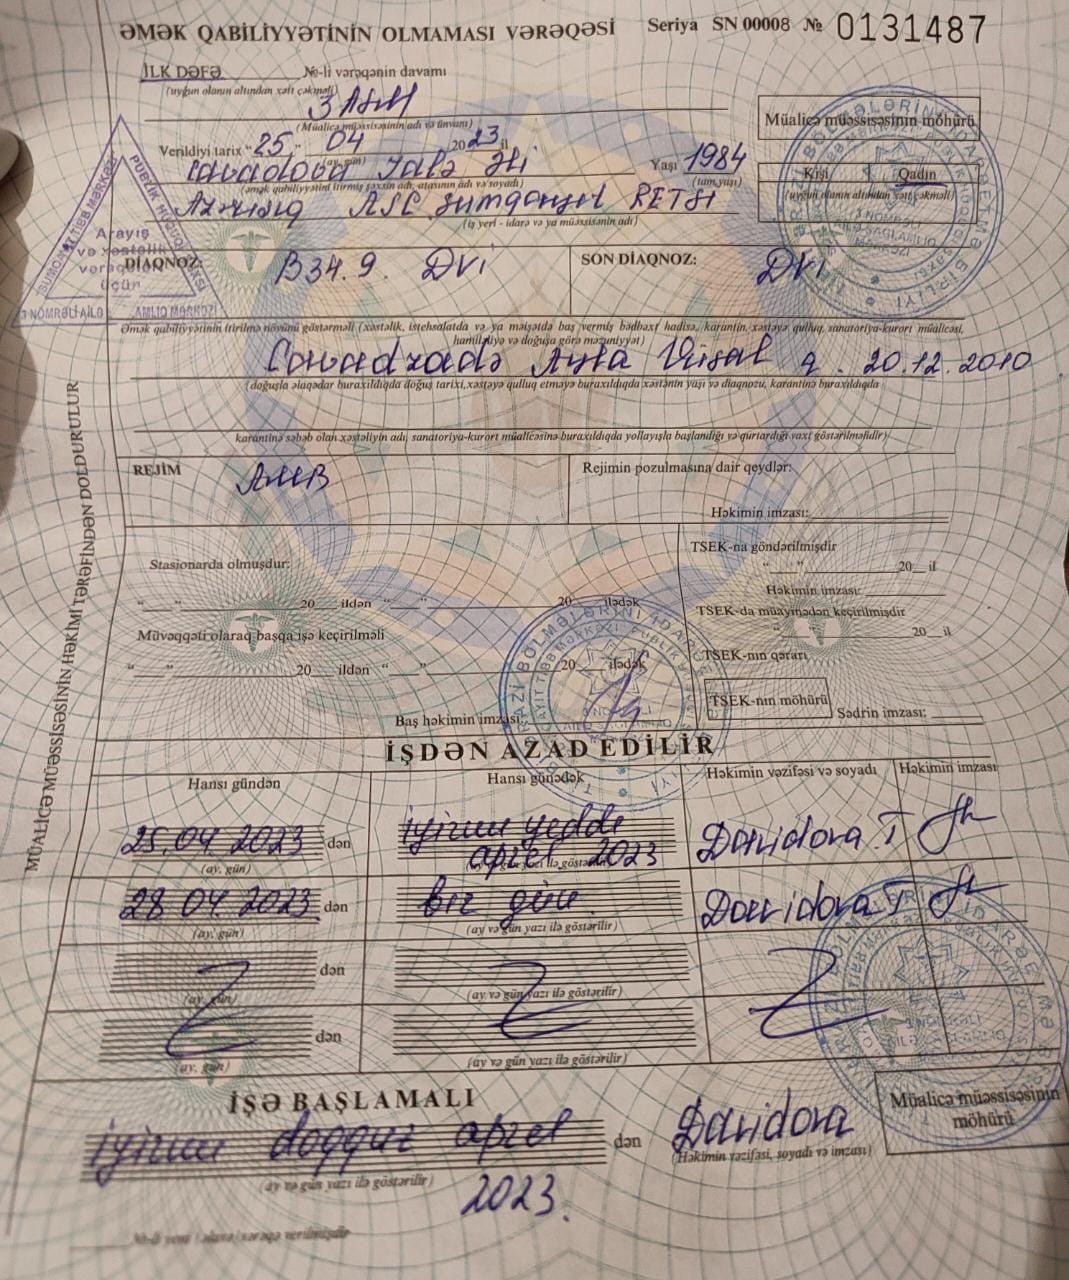 ƏMƏK QABİLİYYƏTİNİN OLMAMASI VƏRƏQƏSİ Seriya SN 00008 № 0131487
İLK DƏFƏ №-li vərəqənin davamı
(uyğun olanın altından xətt çəkməli)
3 ASM
(Müalicə müəssisəsinin adı və ünvanı)
Müalicə müəssisəsinin möhürü
Verildiyi tarix "25" 04 2023 il
(ay, gün)
Cavadova Jalə Əli Yaşı 1984
(əmək qabiliyyətini itirmiş şəxsin adı, atasının adı və soyadı) (tam yaşı)
Kişi Qadın
(uyğun olanın altından xətt çəkməli)
Azərişıq ASC Sumqayıt RETSİ
(iş yeri - idarə və ya müəssisənin adı)
Arayış
və xəstəlik
vərəqələri
üçün
DİAQNOZ: B34.9. DVİ SON DİAQNOZ: DVİ
Əmək qabiliyyətinin itirilmə növünü göstərməli (xəstəlik, istehsalatda və ya məişətdə baş vermiş bədbəxt hadisə, karantin, xəstəyə qulluq, sanatoriya-kurort müalicəsi,
hamiləliyə və doğuşa görə məzuniyyət)
Cavadzadə Ayla Vüsal q. 20.12.2010
(doğuşla əlaqədar buraxıldıqda doğuş tarixi, xəstəyə qulluq etməyə buraxıldıqda xəstənin yaşı və diaqnozu, karantinə buraxıldıqda
karantinə səbəb olan xəstəliyin adı, sanatoriya-kurort müalicəsinə buraxıldıqda yollayışla başlandığı və qurtardığı vaxt göstərilməlidir)
REJİM AMB Rejimin pozulmasına dair qeydlər:
Həkimin imzası:
Stasionarda olmuşdur:
"__" 20__ ildən "__" 20__ ilədək
Müvəqqəti olaraq başqa işə keçirilməli
"__" 20__ ildən "__" 20__ ilədək
Baş həkimin imzası:
TSEK-na göndərilmişdir
"__" 20__ il
Həkimin imzası:
TSEK-da müayinədən keçirilmişdir
"__" 20__ il
TSEK-nın qərarı
TSEK-nın möhürü Sədrin imzası:
MÜALİCƏ MÜƏSSİSƏSİNİN HƏKİMİ TƏRƏFİNDƏN DOLDURULUR
İŞDƏN AZAD EDİLİR
Hansı gündən Hansı günədək Həkimin vəzifəsi və soyadı Həkimin imzası
25.04 2023 dən iyirmi yeddi aprel 2023 Davidova T
(ay, gün) (ay və gün yazı ilə göstərilir)
28 04 2023 dən bir gün Davidova T
(ay, gün) (ay və gün yazı ilə göstərilir)
dən
(ay, gün) (ay və gün yazı ilə göstərilir)
dən
(ay, gün) (ay və gün yazı ilə göstərilir)
İŞƏ BAŞLAMALI
iyirmi doqquz aprel dən Davidova
(ay və gün yazı ilə göstərilir) (Həkimin vəzifəsi, soyadı və imzası)
2023.
Müalicə müəssisəsinin
möhürü